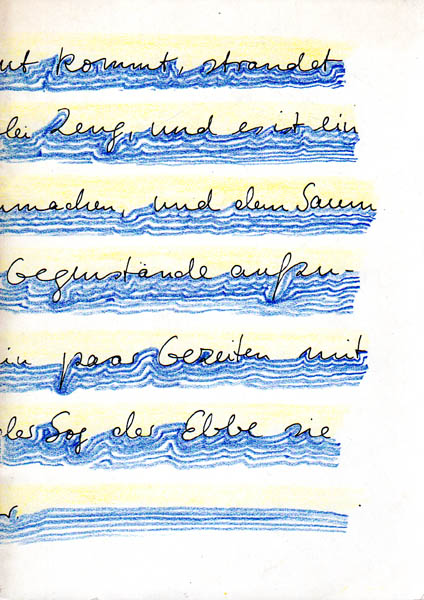 ut kommt, strandet
lei Zeug, und es ist ein
machen, und dem Saum
Gegenstände aufzu-
in paar Gezeiten mit
der Sog der Ebbe sie
r.